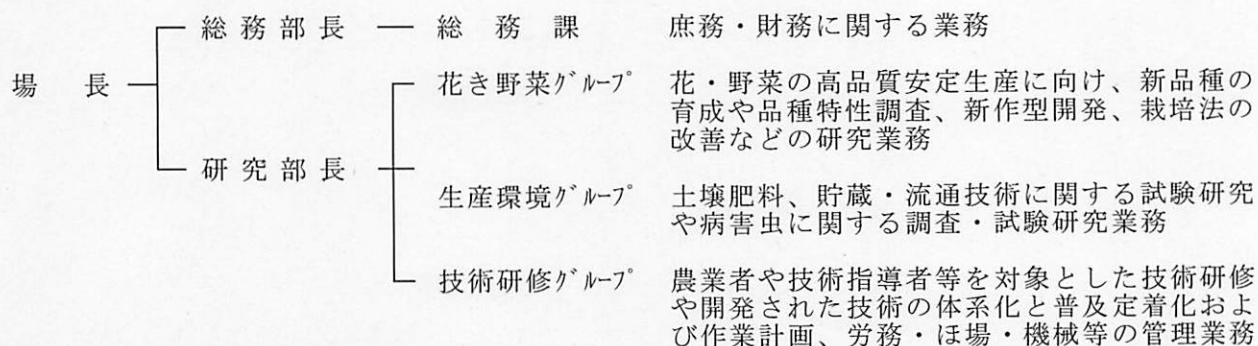 総務部長 総務課 庶務・財務に関する業務
場長
花き野菜ｸﾞﾙｰﾌﾟ 花・野菜の高品質安定生産に向け、新品種の
育成や品種特性調査、新作型開発、栽培法の
改善などの研究業務
研究部長
生産環境ｸﾞﾙｰﾌﾟ 土壌肥料、貯蔵・流通技術に関する試験研究
や病害虫に関する調査・試験研究業務
技術研修ｸﾞﾙｰﾌﾟ 農業者や技術指導者等を対象とした技術研修
や開発された技術の体系化と普及定着化およ
び作業計画、労務・ほ場・機械等の管理業務